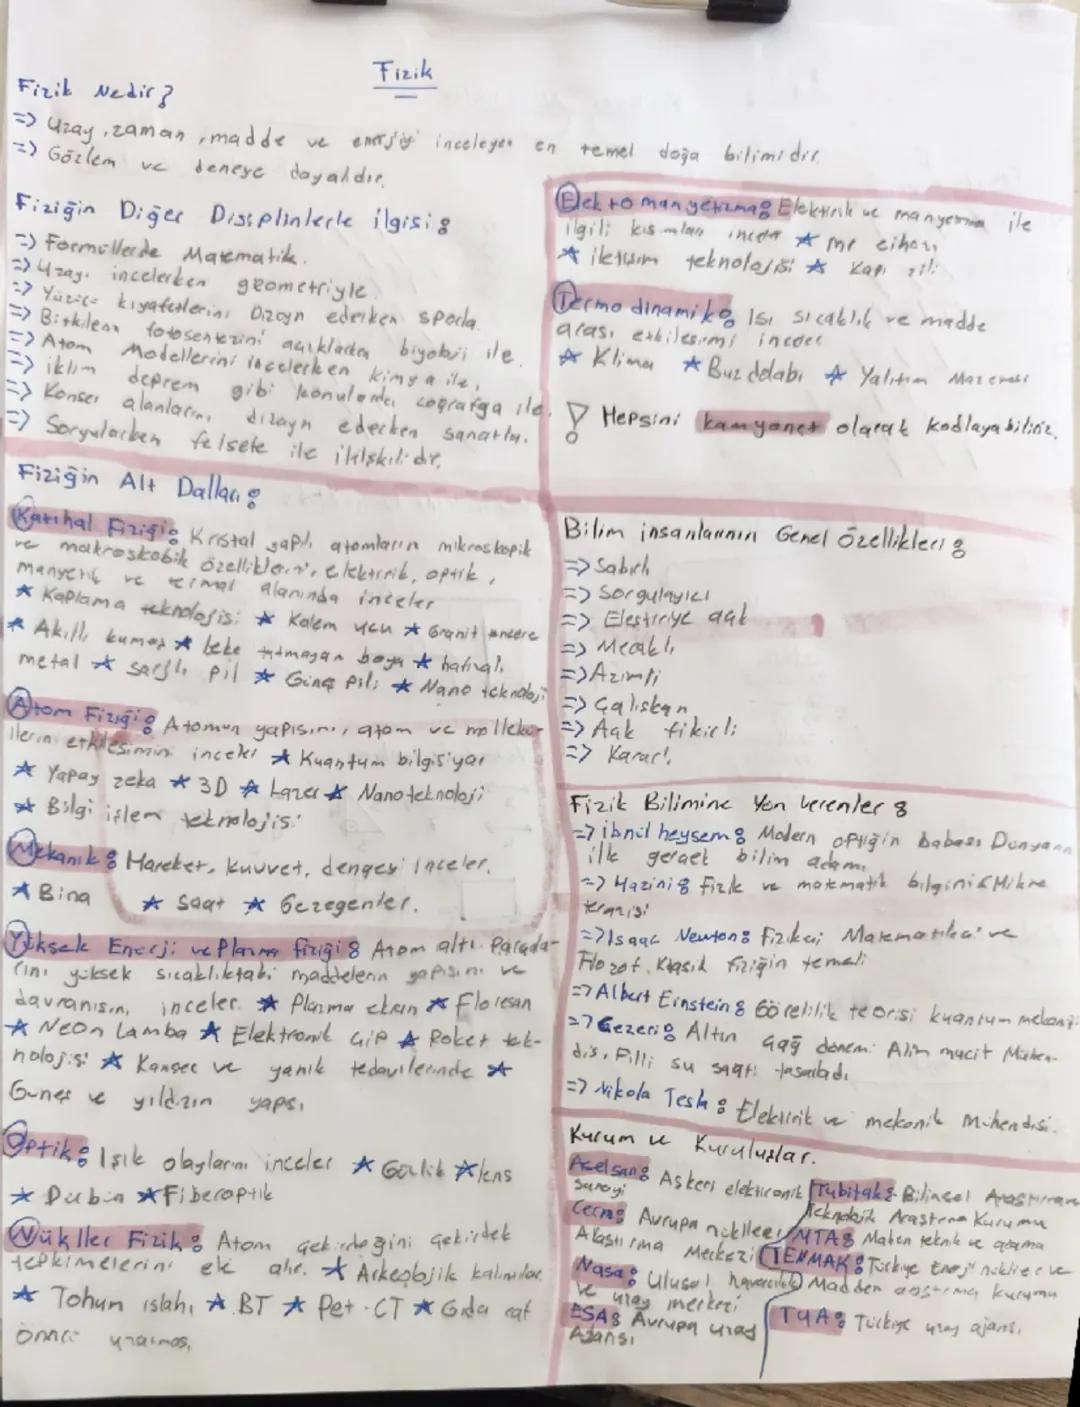 Fizik
Fizik Nedir?
=> Uzay, zaman, madde ve enerjiyi inceleyen en temel doğa bilimidir.
=> Gözlem ve deneye dayalıdır.
Fiziğin Diğer Dissplinlerle ilgisi:
=> Formüllerde Matematik.
=> Uzayı incelerken geometriyle
=> Yüzücü kıyafetlerini Dizayn ederken sporla.
=> Bitkilerin fotosentezini açıklarken biyoloji ile.
=> Atom Modellerini incelerken kimya ile,
=> iklim deprem gibi konularda coğrafya ile.
=> Konser alanlarını dizayn ederken sanatla.
=> Sorgularken felsefe ile ilişkilidir.
Fiziğin Alt Dalları:
Katıhal Fiziği: Kristal yapılı atomların mikroskopik
ve makroskobik özelliklerini, elektirik, optik,
manyetik ve termal alanında inceler
* Kaplama teknolojisi * Kalem ucu * Granit tencere
* Akıllı kumaş * leke tutmayan boya * hafızalı
metal * sarjlı pil * Güneş pili * Nano teknoloji
Atom Fiziği: Atomun yapısını, atom ve mollekül-
lerin etkilesimini inceler * Kuantum bilgisiyar
* Yapay zeka * 3D * Lazer * Nanoteknoloji
* Bilgi işlem teknolojisi
Mekanik: Hareket, kuvvet, dengeyi inceler.
* Bina * Saat * Gezegenler.
Yüksek Enerji ve Plazma fiziği: Atom altı Parçada-
rını yüksek sıcaklıktaki maddelerin yapısını ve
davranısını inceler. * Plazma ekran * Floresan
* Neon Lamba * Elektronik Çip * Roket tek-
nolojisi * Kanser ve yanık tedavilerinde *
Güneş ve yıldızın yapısı
Optik: Işık olaylarını inceler * Gözlük * lens
* Dürbün * Fiberoptik
Nükller Fizik: Atom çekirdeğini çekirdek
tepkimelerini ele alır. * Arkeolojik kalıntılar
* Tohum ıslahı * BT * Pet-CT * Gıda raf
ömrü uzatması
Elektomanyetizma: Elektirik ve manyetizma ile
ilgili kısımları inceler * mr cihazı
* iletişim teknolojisi * Kapı zili
Termodinamik: Isı sıcaklık ve madde
arası etkilesimi inceler
* Klima * Buzdolabı * Yalıtım Mazemesi
! Hepsini kamyonet olarak kodlayabiliriz.
Bilim insanlarının Genel özellikleri:
=> Sabırlı
=> Sorgulayıcı
=> Eleştiriye açık
=> Meraklı
=> Azimli
=> Çalışkan
=> Açık fikirli
=> Kararlı
Fizik Bilimine Yön verenler:
=> ibnül heysem: Modern optiğin babası Dünyanın
ilk gerçek bilim adamı
=> Hazini: Fizik ve matematik bilgini
terazisi
=> Isaac Newton: Fizikçi Matematikçi ve
Flozof. Klasik fiziğin temeli
=> Albert Einstein: Görelilik teorisi kuantum mekaniği
=> Cezeri: Altın çağ dönemi Alim mucit Mühen-
dis, Filli su saati tasarladı
=> Nikola Tesla: Elektirik ve mekanik Mühendisi.
Kurum ve Kuruluşlar.
Aselsan: Askeri elektironik
sanayi
Cern: Avrupa nüklleer
Araştırma Merkezi
Nasa: Ulusal havacılık
ve uzay merkezi
ESA: Avrupa uzay
Ajansı
Tubitak: Bilimsel Araştırma
Teknolojik Araştırma Kurumu
MTA: Maden teknik ve arama
TENMAK: Türkiye Enerji nükleer ve
Madden araştırma kurumu
TUA: Türkiye uzay ajansı.